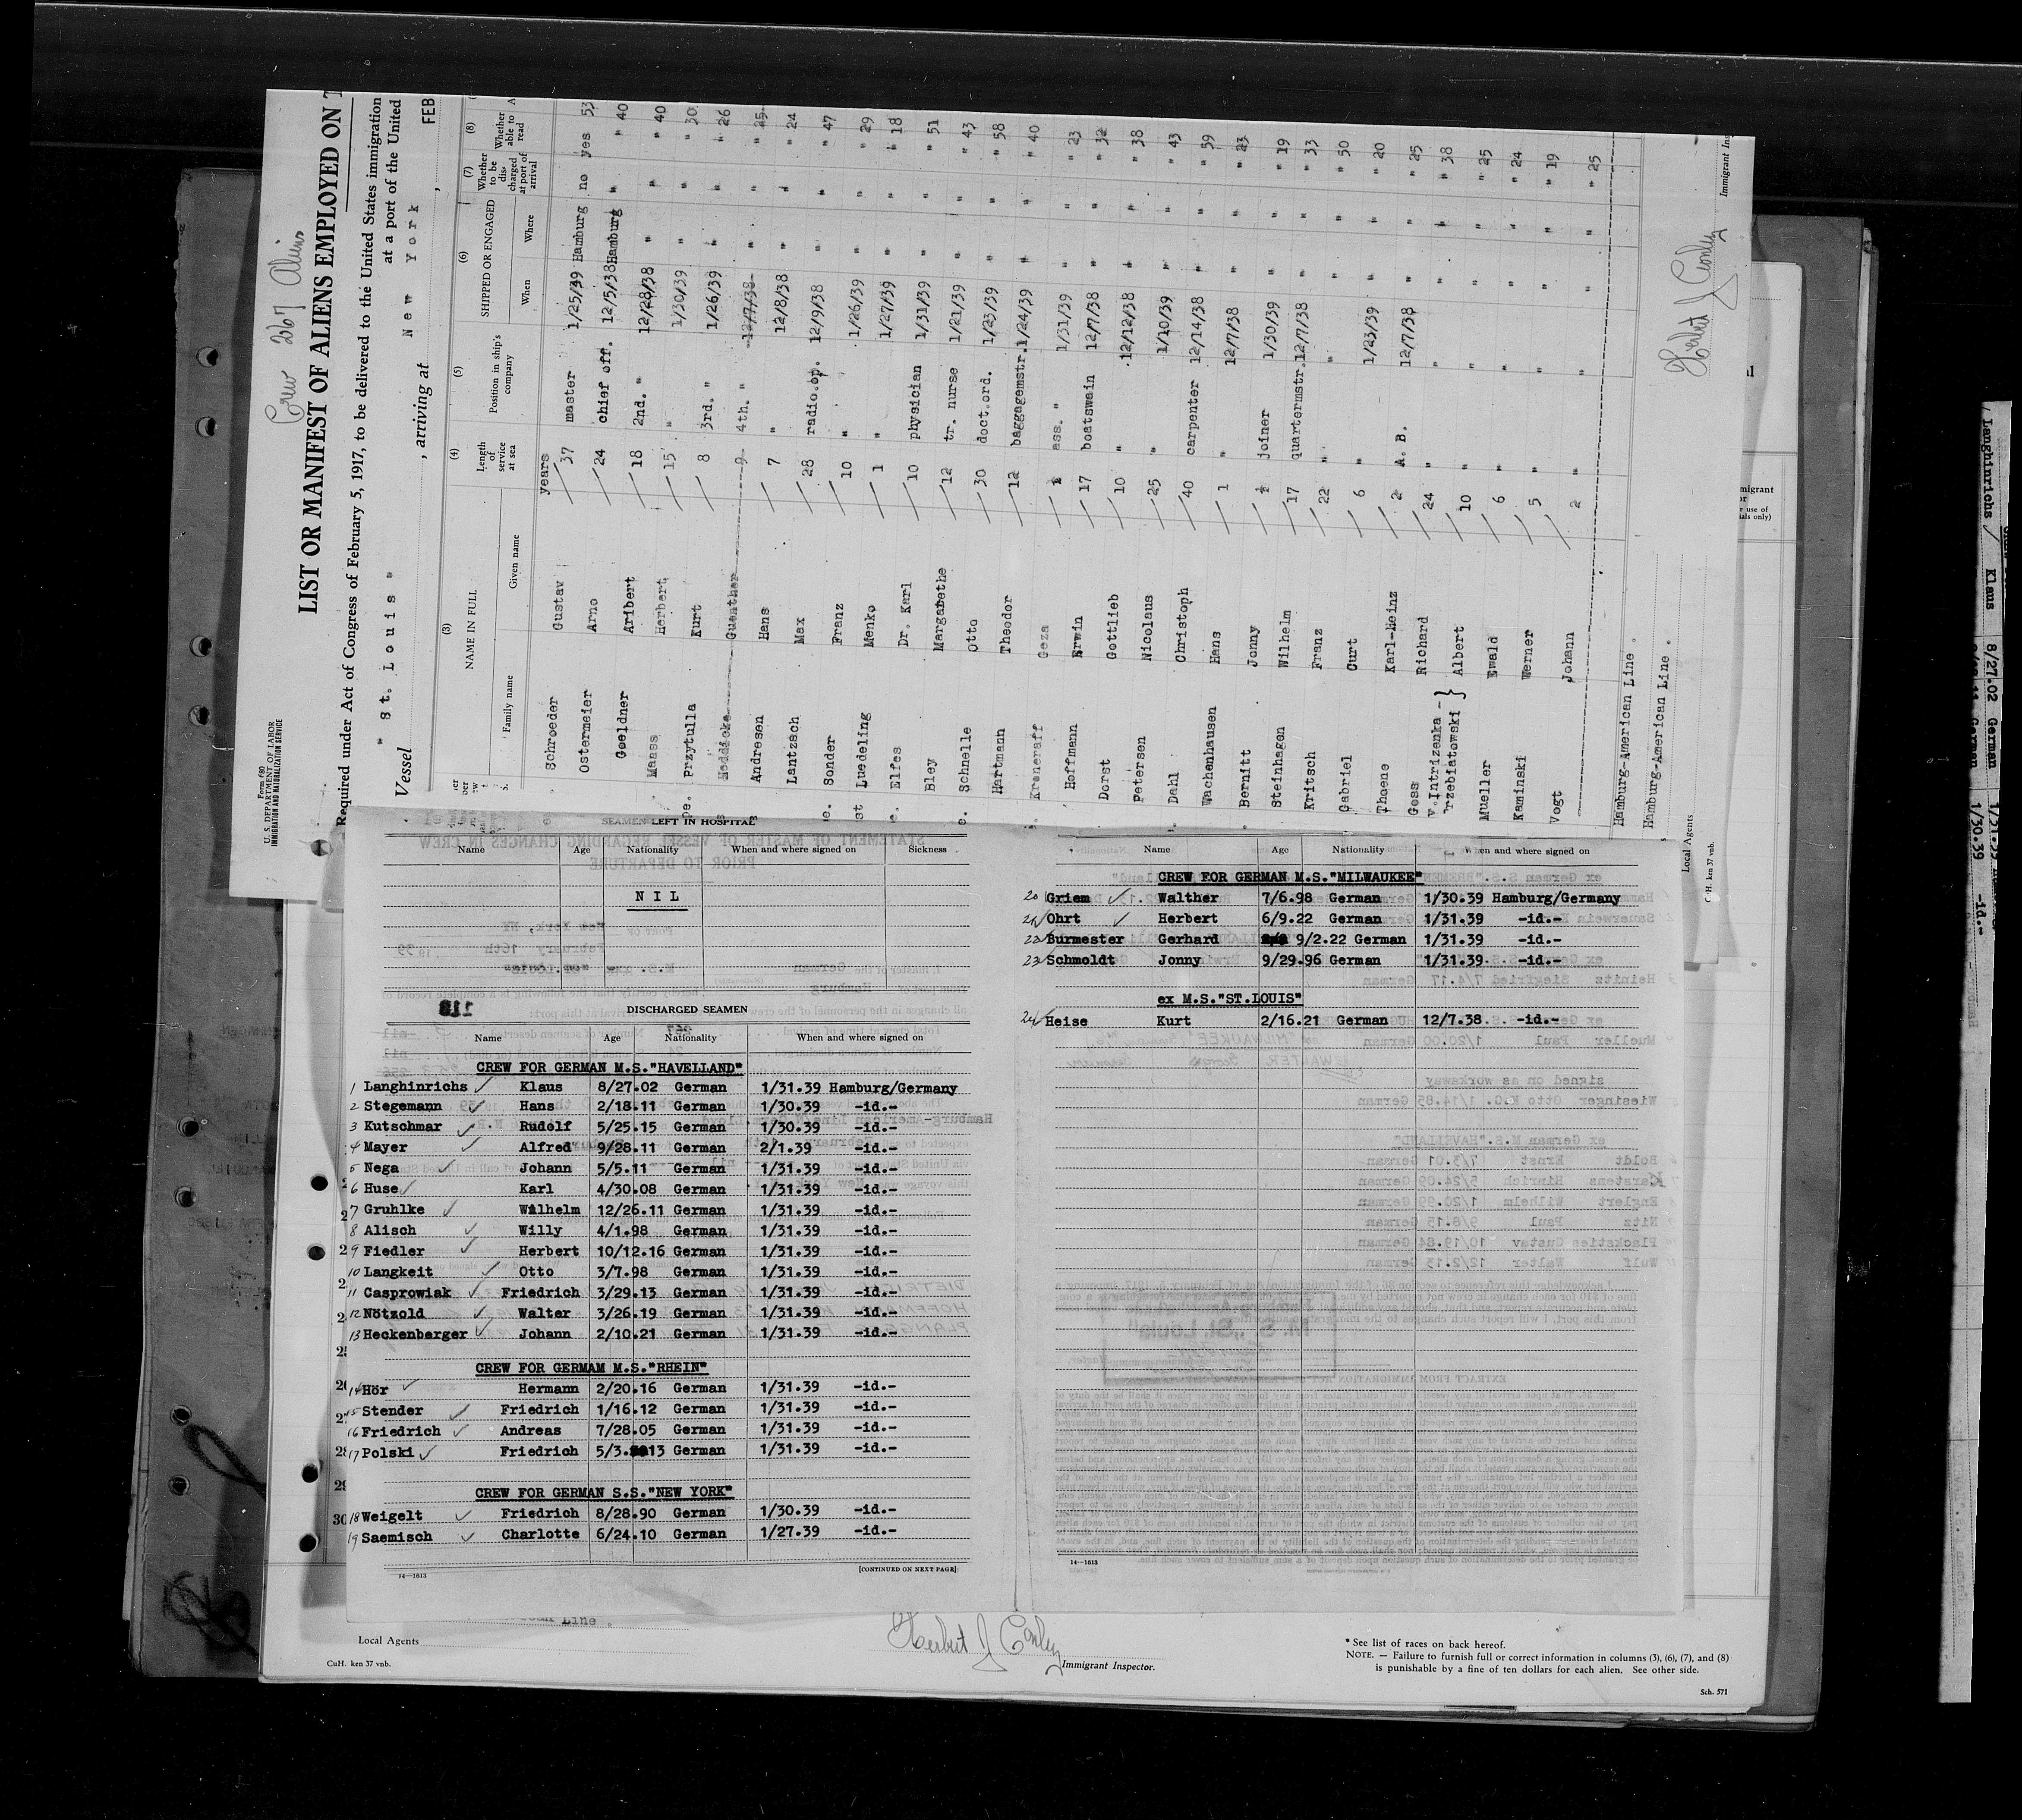 Crew 267 Aliens
Form 680
U. S. DEPARTMENT OF LABOR
IMMIGRATION AND NATURALIZATION SERVICE
LIST OR MANIFEST OF ALIENS EMPLOYED ON T
Required under Act of Congress of February 5, 1917, to be delivered to the United States immigration
at a port of the United
Vessel " St. Louis " , arriving at New York , FEB
(3) (4) (5) (6) (7) (8)
NAME IN FULL Length of service at sea Position in ship's company SHIPPED OR ENGAGED Whether to be discharged at port of arrival Whether able to read
Family name Given name When Where
years
Schroeder Gustav 37 master 1/25/39 Hamburg no yes 53
Ostermeier Arno 24 chief off. 12/5/38 Hamburg " " 40
Goeldner Aribert 18 2nd. " 12/28/38 " " " 40
Maass Herbert 15 " 1/30/39 " " " 30
Przytulla Kurt 8 3rd. " 1/26/39 " " " 26
Heddicke Guenther 9 4th. " 12/7/38 " " " 25
Andresen Hans 7 " 12/8/38 " " " 24
Lantzsch Max 28 radio.op. 12/9/38 " " " 47
Sonder Franz 10 " 1/26/39 " " " 29
Luedeling Menko 1 " 1/27/39 " " " 18
Elfes Dr. Karl 10 physician 1/31/39 " " " 51
Bley Margarethe 12 tr. nurse 1/21/39 " " " 43
Schnelle Otto 30 doct.ord. 1/23/39 " " " 58
Hartmann Theodor 12 baggagemstr. 1/24/39 " " " 40
Geza ass. " 1/31/39 " " " 23
Hoffmann Erwin 17 boatswain 12/7/38 " " " 32
Dorst Gottlieb 10 " 12/12/38 " " " 38
Petersen Nicolaus 25 " 1/10/39 " " " 43
Dahl Christoph 40 carpenter 12/14/38 " " " 59
Wachenhausen Hans 1 " 12/7/38 " " " 23
Bernitt Jonny joiner 1/30/39 " " " 19
Steinhagen Wilhelm 17 quartermstr. 12/7/38 " " " 33
Kritsch Franz 22 " " " " " 50
Gabriel Curt 6 " 1/23/39 " " " 20
Thoene Karl-Heinz 2 A. B. 12/7/38 " " " 25
Goss Richard 24 " " " " " 38
v.Intrizenka - } Albert 10 " " " " " 25
Trzebiatowski
Mueller Ewald 6 " " " " " 24
Kaminski Werner 5 " " " " " 19
Vogt Johann 2 " " " " " 25
Hamburg-American Line .
Hamburg-American Line .
Herbert J Conley
Immigrant Ins
Local Agents
CuH. ken 37 vnb.
SEAMEN LEFT IN HOSPITAL
Name Age Nationality When and where signed on Sickness
NIL
118
DISCHARGED SEAMEN
Name Age Nationality When and where signed on
CREW FOR GERMAN M.S."HAVELLAND"
1 Langhinrichs Klaus 8/27.02 German 1/31.39 Hamburg/Germany
2 Stegemann Hans 2/18.11 German 1/30.39 -id.-
3 Kutschmar Rudolf 5/25.15 German 1/30.39 -id.-
4 Mayer Alfred 9/28.11 German 2/1.39 -id.-
5 Nega Johann 5/5.11 German 1/31.39 -id.-
6 Huse Karl 4/30.08 German 1/31.39 -id.-
7 Gruhlke Wilhelm 12/26.11 German 1/31.39 -id.-
8 Alisch Willy 4/1.98 German 1/31.39 -id.-
9 Fiedler Herbert 10/12.16 German 1/31.39 -id.-
10 Langkeit Otto 3/7.98 German 1/31.39 -id.-
11 Casprowiak Friedrich 3/29.13 German 1/31.39 -id.-
12 Nötzold Walter 3/26.19 German 1/31.39 -id.-
13 Heckenberger Johann 2/10.21 German 1/31.39 -id.-
CREW FOR GERMAM M.S."RHEIN"
14 Hör Hermann 2/20.16 German 1/31.39 -id.-
15 Stender Friedrich 1/16.12 German 1/31.39 -id.-
16 Friedrich Andreas 7/28.05 German 1/31.39 -id.-
17 Polski Friedrich 5/3.13 German 1/31.39 -id.-
CREW FOR GERMAN S.S."NEW YORK"
18 Weigelt Friedrich 8/28.90 German 1/30.39 -id.-
19 Saemisch Charlotte 6/24.10 German 1/27.39 -id.-
14—1613
[CONTINUED ON NEXT PAGE]
Name Age Nationality When and where signed on
CREW FOR GERMAN M.S."MILWAUKEE"
20 Griem Walther 7/6.98 German 1/30.39 Hamburg/Germany
21 Ohrt Herbert 6/9.22 German 1/31.39 -id.-
22 Burmester Gerhard 9/2.22 German 1/31.39 -id.-
23 Schmoldt Jonny 9/29.96 German 1/31.39 -id.-
ex M.S."ST.LOUIS"
24 Heise Kurt 2/16.21 German 12/7.38 -id.-
14—1613
Line .
Local Agents
CuH. ken 37 vnb.
Herbert J Conley
Immigrant Inspector.
* See list of races on back hereof.
NOTE. — Failure to furnish full or correct information in columns (3), (6), (7), and (8)
is punishable by a fine of ten dollars for each alien. See other side.
Sch. 571
Langhinrichs / Klaus 8/27.02 German 1/31.39
1/30.39 -id.-